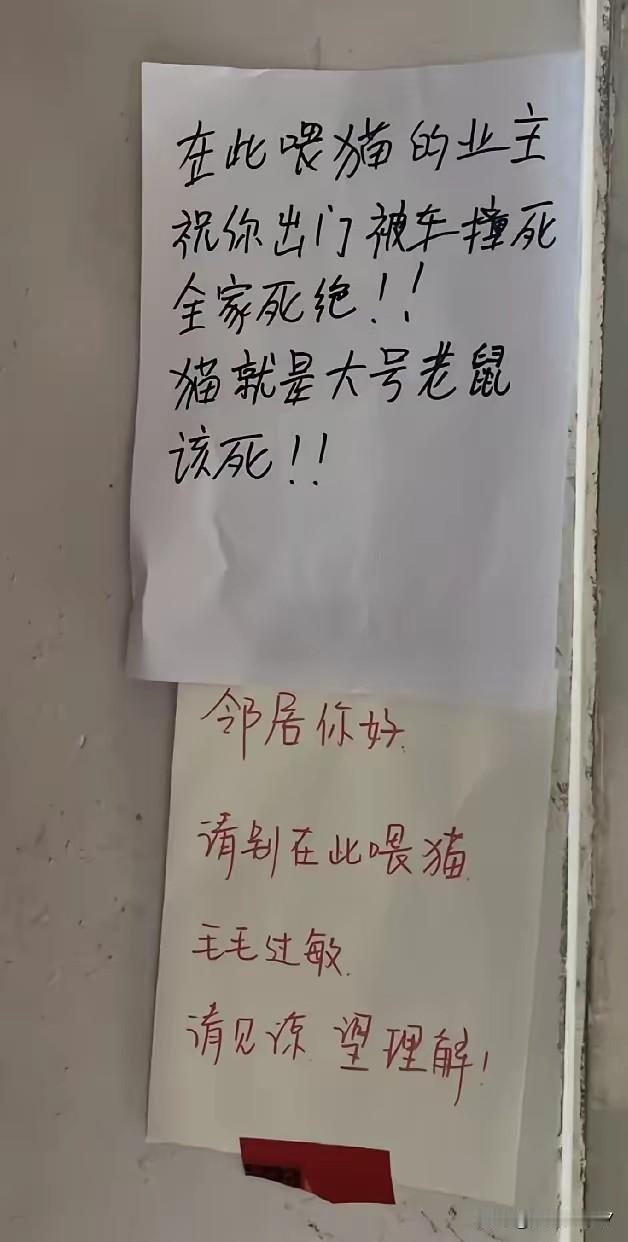 在此喂猫的业主
祝你出门被车撞死
全家死绝!!
猫就是大号老鼠
该死!!
邻居你好.
请别在此喂猫.
毛毛过敏.
请见谅 望理解!